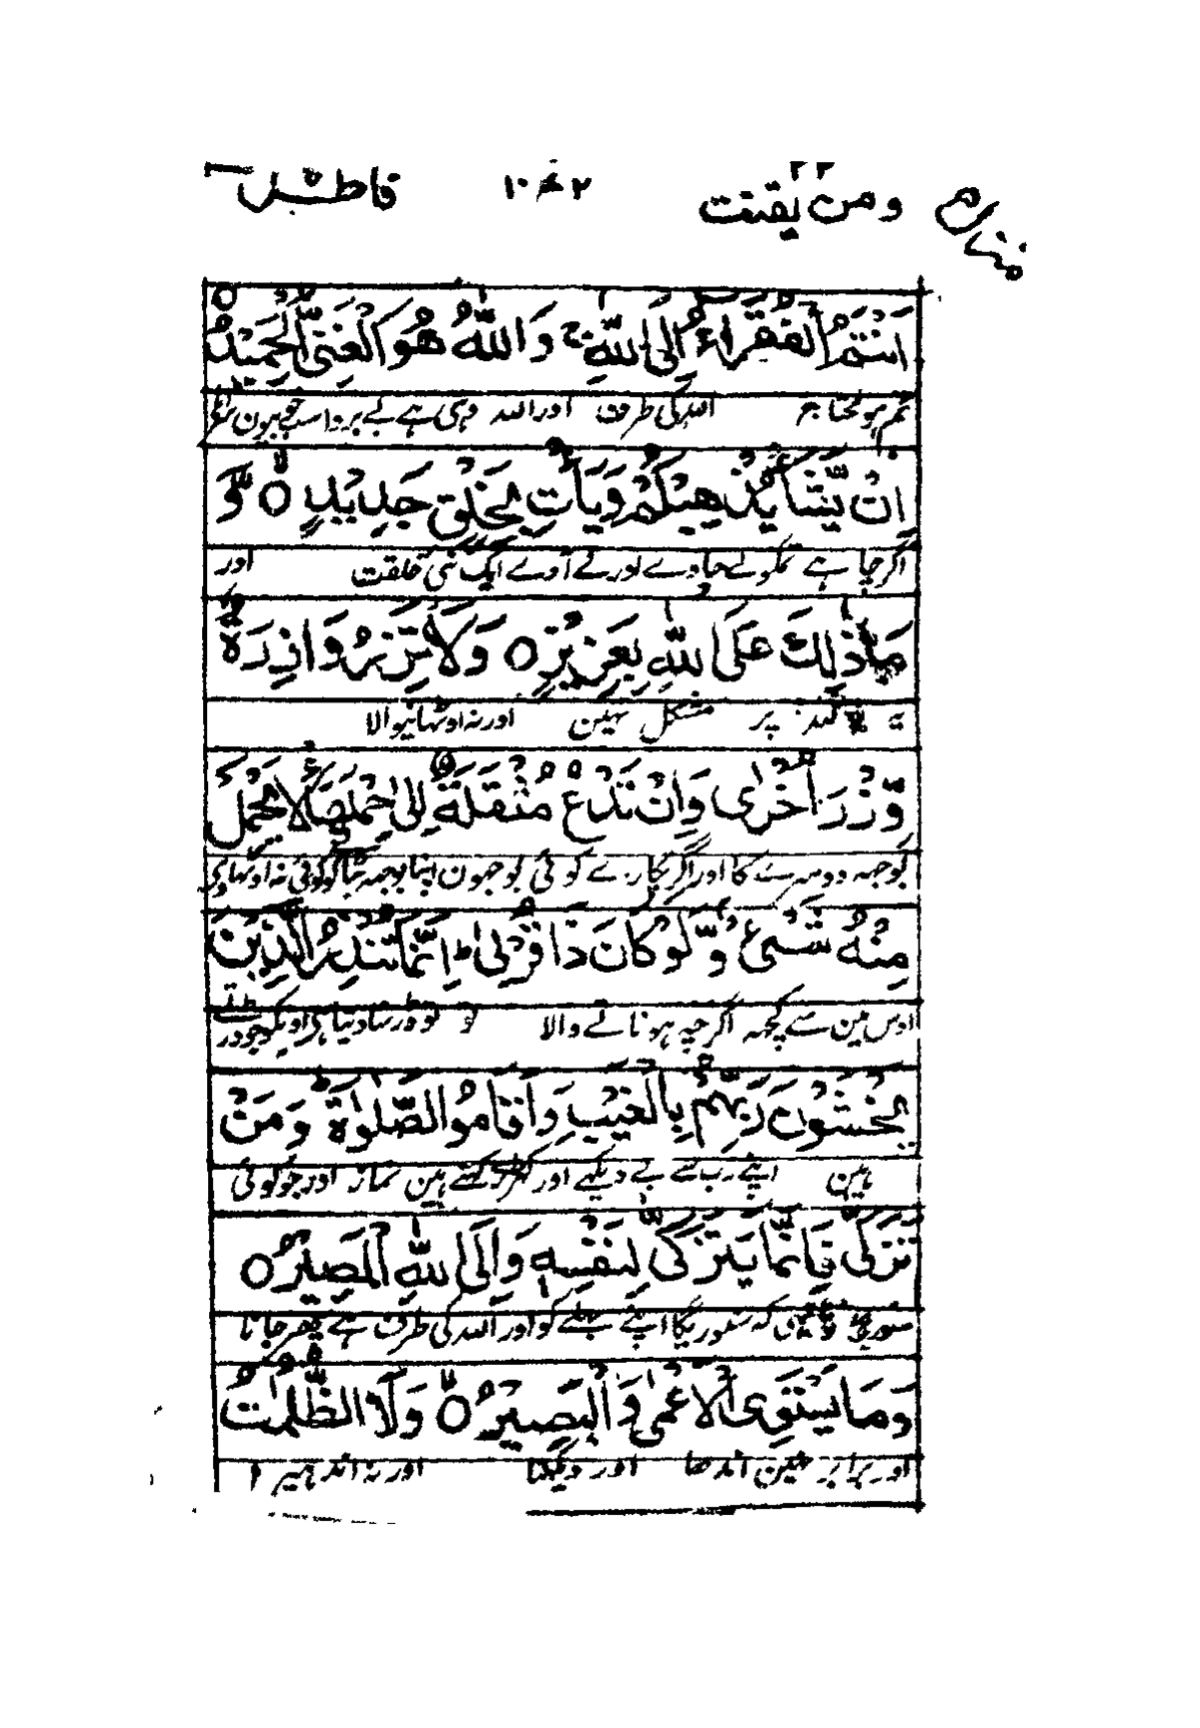 منزل ۵ ومن یقنت ۲۲ ۱۰۰۲ فاطر
اَنْتُمُ الْفُقَرَآءُ اِلَى اللّٰهِ ۚ وَاللّٰهُ هُوَ الْغَنِیُّ الْحَمِیْدُ ۝
تم ہو محتاج اللہ کی طرف اور اللہ وہی ہے بے پروا سب خوبیوں
اِنْ یَّشَاْ یُذْهِبْكُمْ وَیَاْتِ بِخَلْقٍ جَدِیْدٍ ۝ وَ
اگر چاہے تمکو لے جاوے اور لے آوے ایک نئی خلقت اور
مَا ذٰلِكَ عَلَى اللّٰهِ بِعَزِیْزٍ ۝ وَلَا تَزِرُ وَازِرَةٌ
یہ اللہ پر مشکل نہین اور نہ اوٹھائیوالا
وِّزْرَ اُخْرٰى وَاِنْ تَدْعُ مُثْقَلَةٌ اِلٰى حِمْلِهَا لَا یُحْمَلْ
بوجہ دوسرے کا اور اگر پکارے کوئی بوجہون اپنا بوجہ بٹانیکو کوئی نہ اوٹھاوی
مِنْهُ شَیْءٌ وَّلَوْ كَانَ ذَا قُرْبٰى ؕ اِنَّمَا تُنْذِرُ الَّذِیْنَ
اوس مین سے کچھہ اگرچہ ہو ناتے والا تو تو ڈر سنا دیتا ہی اونکو جو ڈرتے
یَخْشَوْنَ رَبَّهُمْ بِالْغَیْبِ وَاَقَامُوا الصَّلٰوةَ ؕ وَمَنْ
ہین اپنے رب سے بے دیکھے اور کھڑی رکھتے ہین نماز اور جو کوئی
تَزَكّٰى فَاِنَّمَا یَتَزَكّٰى لِنَفْسِهٖ وَاِلَى اللّٰهِ الْمَصِیْرُ ۝
سنوریگا تو یہی کہ سنوریگا اپنے بھلے کو اور اللہ کی طرف ہے پھر جانا
وَمَا یَسْتَوِى الْاَعْمٰى وَالْبَصِیْرُ ۝ وَلَا الظُّلُمٰتُ
اور برابر نہین اندھا اور دیکھتا اور نہ اندہیرا